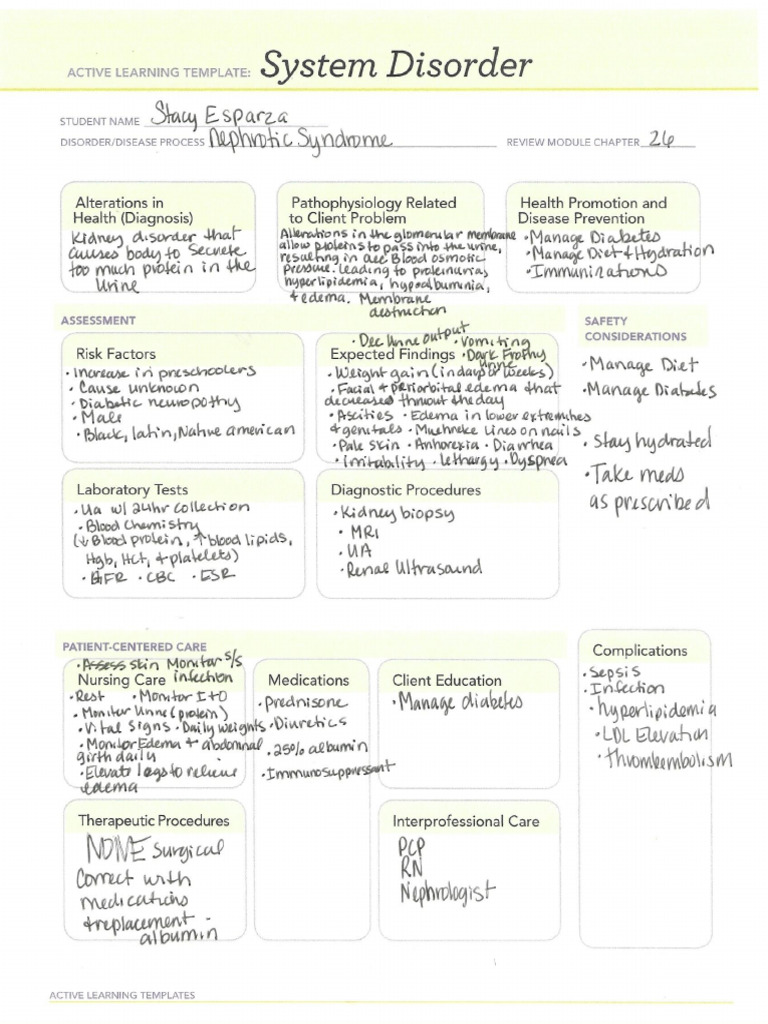 ACTIVE LEARNING TEMPLATE: System Disorder
STUDENT NAME Stacy Esparza
DISORDER/DISEASE PROCESS Nephrotic Syndrome REVIEW MODULE CHAPTER 26
Alterations in
Health (Diagnosis)
Kidney disorder that
causes body to secrete
too much protein in the
urine
Pathophysiology Related
to Client Problem
Alterations in the glomerular membrane
allow proteins to pass into the urine,
resulting in dec Blood osmotic
pressure. leading to proteinuria,
hyperlipidemia, hypoalbuminia,
+ edema. Membrane
destruction
Health Promotion and
Disease Prevention
• Manage Diabetes
• Manage Diet + Hydration
• Immunizations
ASSESSMENT
Risk Factors
• Increase in preschoolers
• Cause unknown
• Diabetic neuropothy
• Male
• Black, latin, Native american
• Dec Urine output • Vomiting
Expected Findings • Dark Frothy
urine
• Weight gain (in days or weeks)
• Facial + periorbital edema that
decreases thruout the day
• Ascities • Edema in lower extremities
+ genitals • Muehreke lines on nails
• Pale skin • Anhorexia • Diarrhea
• irritability • Lethargy • Dyspnea
SAFETY
CONSIDERATIONS
• Manage Diet
• Manage Diabetes
• Stay hydrated
• Take meds
as prescribed
Laboratory Tests
• Ua w/ 24hr collection
• Blood Chemistry
(↓ Blood protein, ↑ blood lipids,
Hgb, Hct, + platelets)
• GFR • CBC • ESR
Diagnostic Procedures
• Kidney biopsy
• MRI
• UA
• Renal Ultrasound
PATIENT-CENTERED CARE
• Assess skin Monitor s/s
Nursing Care infection
• Rest • Monitor I+O
• Monitor Urine (protein)
• Vital signs • Daily weights
• Monitor Edema + abdominal
girth daily
• Elevate legs to relieve
edema
Medications
• Prednisone
• Diuretics
• 25% albumin
• Immunosuppressant
Client Education
• Manage diabetes
Complications
• Sepsis
• Infection
• hyperlipidemia
• LDL Elevation
• thromboembolism
Therapeutic Procedures
NONE surgical
Correct with
medications
+ replacement -
albumin
Interprofessional Care
PCP
RN
Nephrologist
ACTIVE LEARNING TEMPLATES